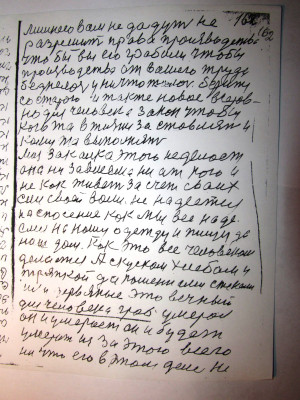 лишнего вам не дадут не 162
разрешит права производства 162
что бы вы его грабали чтобы
производства от вашего труда
беднелоя и ничтожилоя берите
со старого и также новое всегда
но для человека закон чтобы
кого та в жизни заставлят и
кому та выполнят
Моя закалка этого неделает
она ни зависема ни ат кого и
не как живет за счет сваих
сил своей воли. не надеется
на спосение как мы все наде
емся на нашу одежду и пищу да
наш дом. Как это все человеком
делается А с куском хлеба и
тряпкой да
и деревяные это вечный
для человека гроб. умерал
он и умерает он и будет
умерат из за этого всего
ни что его в этом деле не